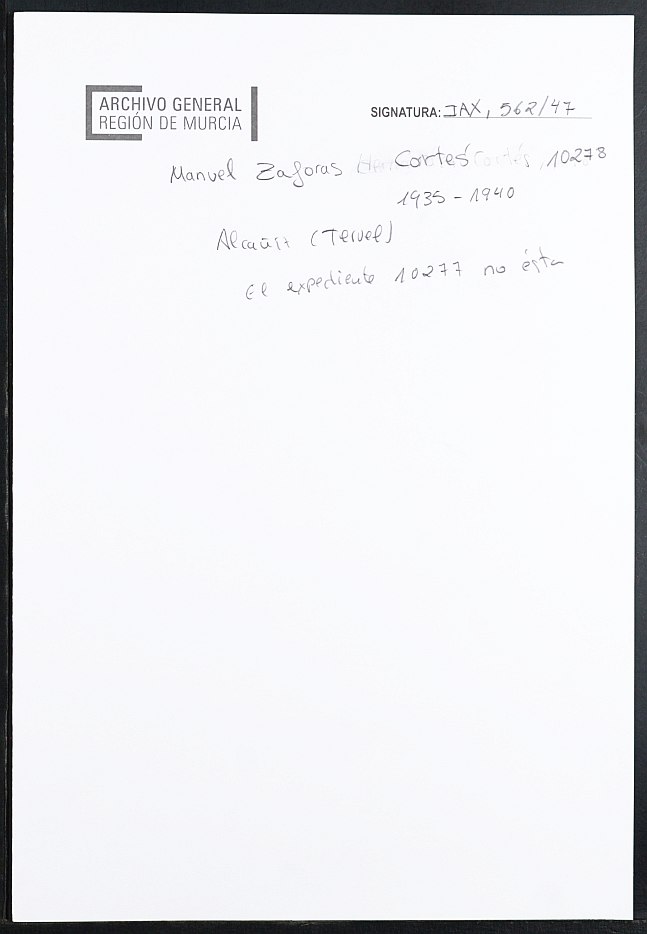 ARCHIVO GENERAL
REGIÓN DE MURCIA
SIGNATURA: JAX, 562/47
Manuel Zaforas Cortés, 10278
1935 - 1940
Alcañiz (Teruel)
El expediente 10277 no ésta